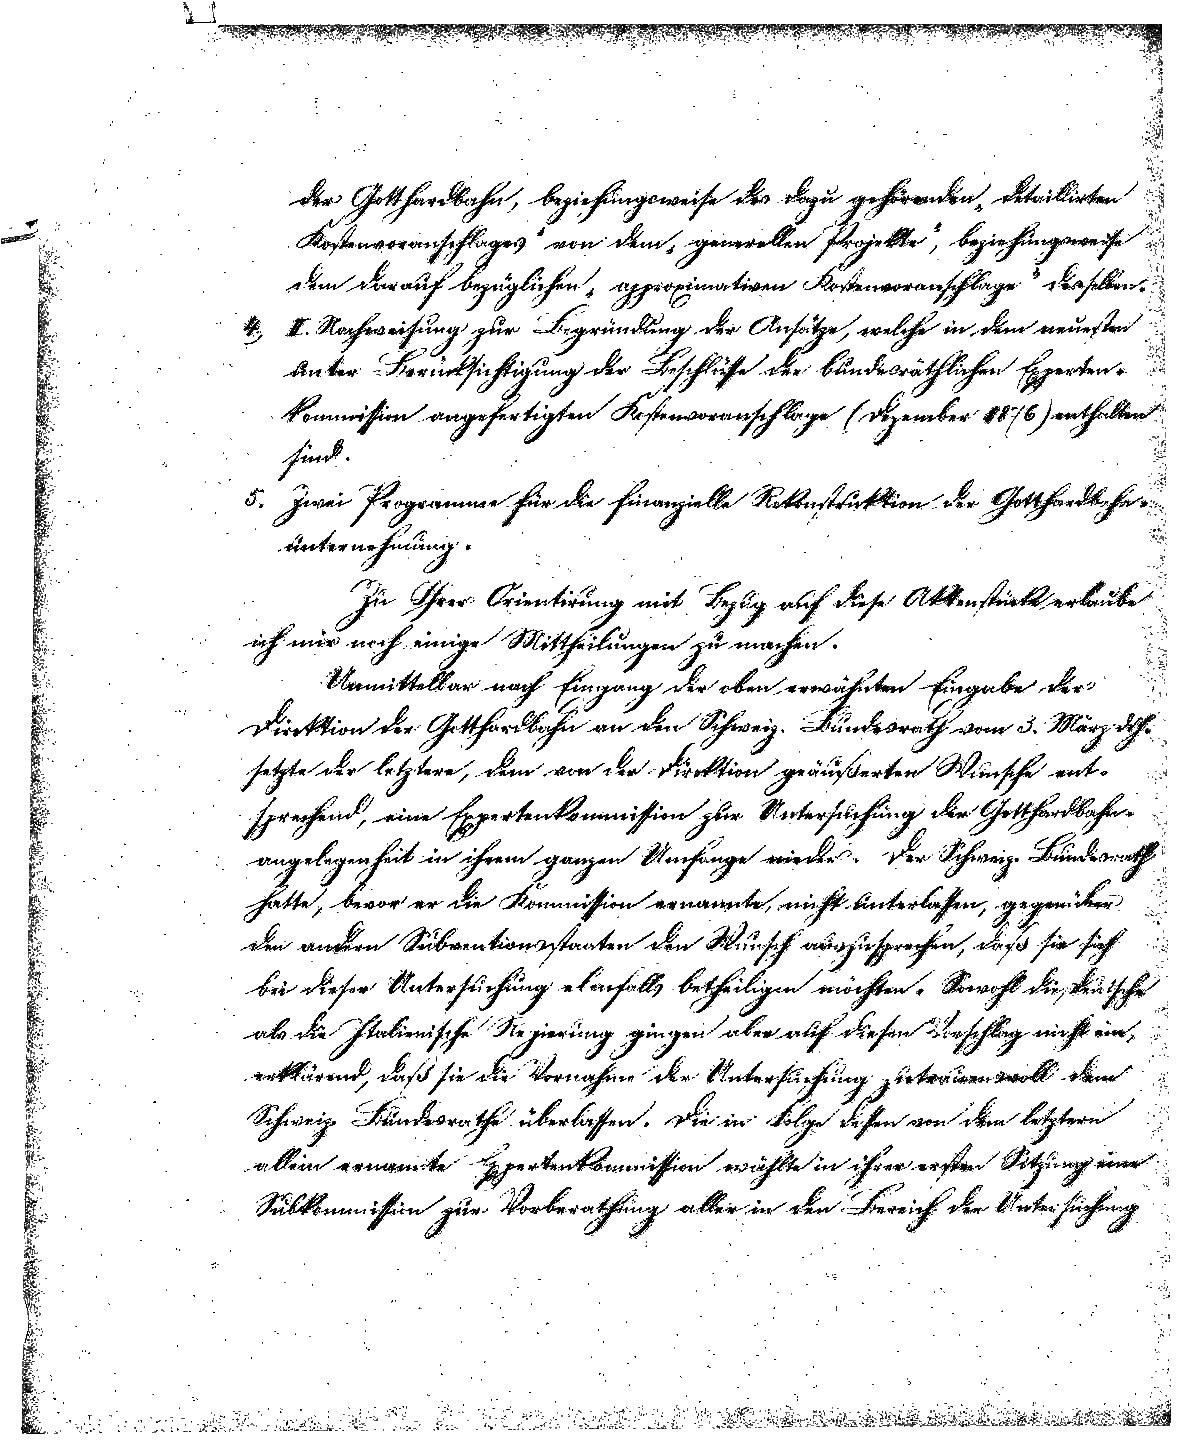 der Gotthardbahn, beziehungsweise des dazu gehörenden „detaillirten
Kostenvoranschlages“ von dem „generellen Projekte“, beziehungsweise
dem darauf bezüglichen „approximativen Kostenvoranschlage“ desselben.
4. II. Nachweisung zur Begründung der Ansätze, welche in dem neuesten
unter Berücksichtigung der Beschlüsse der bundesräthlichen Experten-
kommission angefertigten Kostenvoranschlage (Dezember 1876) enthalten
sind.
5. Zwei Programme für die finanzielle Rekonstruktion der Gotthardbahn-
unternehmung.
Zu Ihrer Orientirung mit Bezug auf diese Aktenstücke erlaube
ich mir noch einige Mittheilungen zu machen.
Unmittelbar nach Eingang der oben erwähnten Eingabe der
Direktion der Gotthardbahn an den Schweiz. Bundesrath vom 3. März dßhs.
setzte der letztere, dem von der Direktion geäußerten Wunsche ent-
sprechend, eine Expertenkommission zur Untersuchung der Gotthardbahn-
angelegenheit in ihrem ganzen Umfange nieder. Der Schweiz. Bundesrath
hatte, bevor er die Kommission ernannte, nicht unterlassen, gegenüber
den andern Subventionsstaaten den Wunsch auszusprechen, daß sie sich
bei dieser Untersuchung ebenfalls betheiligen möchten. Sowohl die Deutsche
als die Italienische Regierung gingen aber auf diesen Vorschlag nicht ein,
erklärend, daß sie die Vornahme der Untersuchung zutrauensvoll dem
Schweiz. Bundesrathe überlassen. Die in Folge dessen von dem letztern
allein ernannte Expertenkommission wählte in ihrer ersten Sitzung eine
Subkommission zur Vorberathung aller in den Bereich der Untersuchung